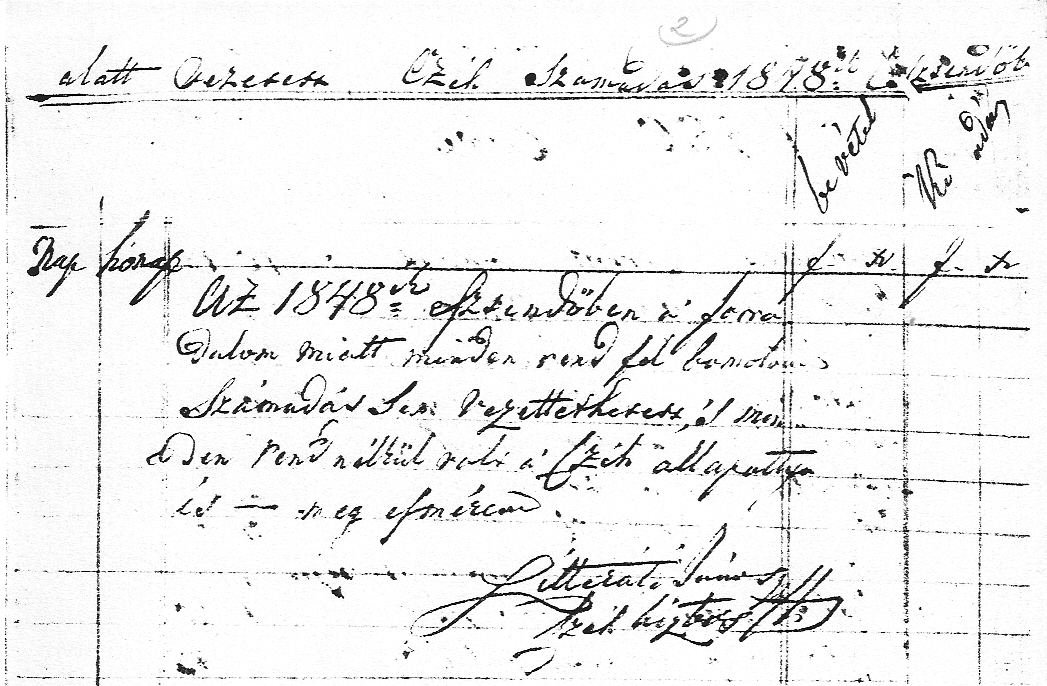 2
alatt Vezetett Czéh Számadás 1848ik Esztendőb
bevétel Ki adás
Nap hónap f x f x
Az 1848ik Esztendőben a forra
dalom miatt minden rend fel bomolván
Számadás Sem Vezettethetett, és min
Den rend nélkül való a Czéh allapattya
is — meg esmérem
Litteráti János
Czéh biztos